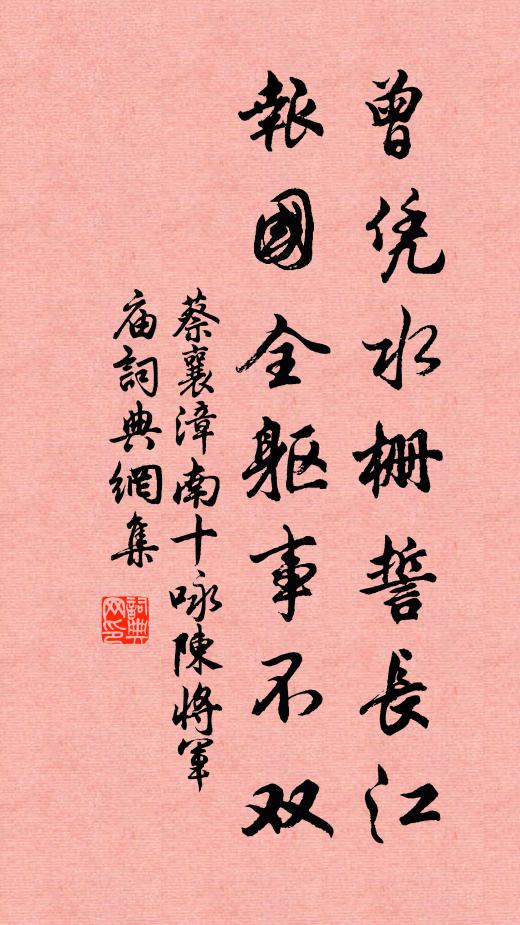 曾凭水栅誓長江
報國全躯事不双
蔡襄漳南十咏陳將軍
庙詞典網集
詞典网印